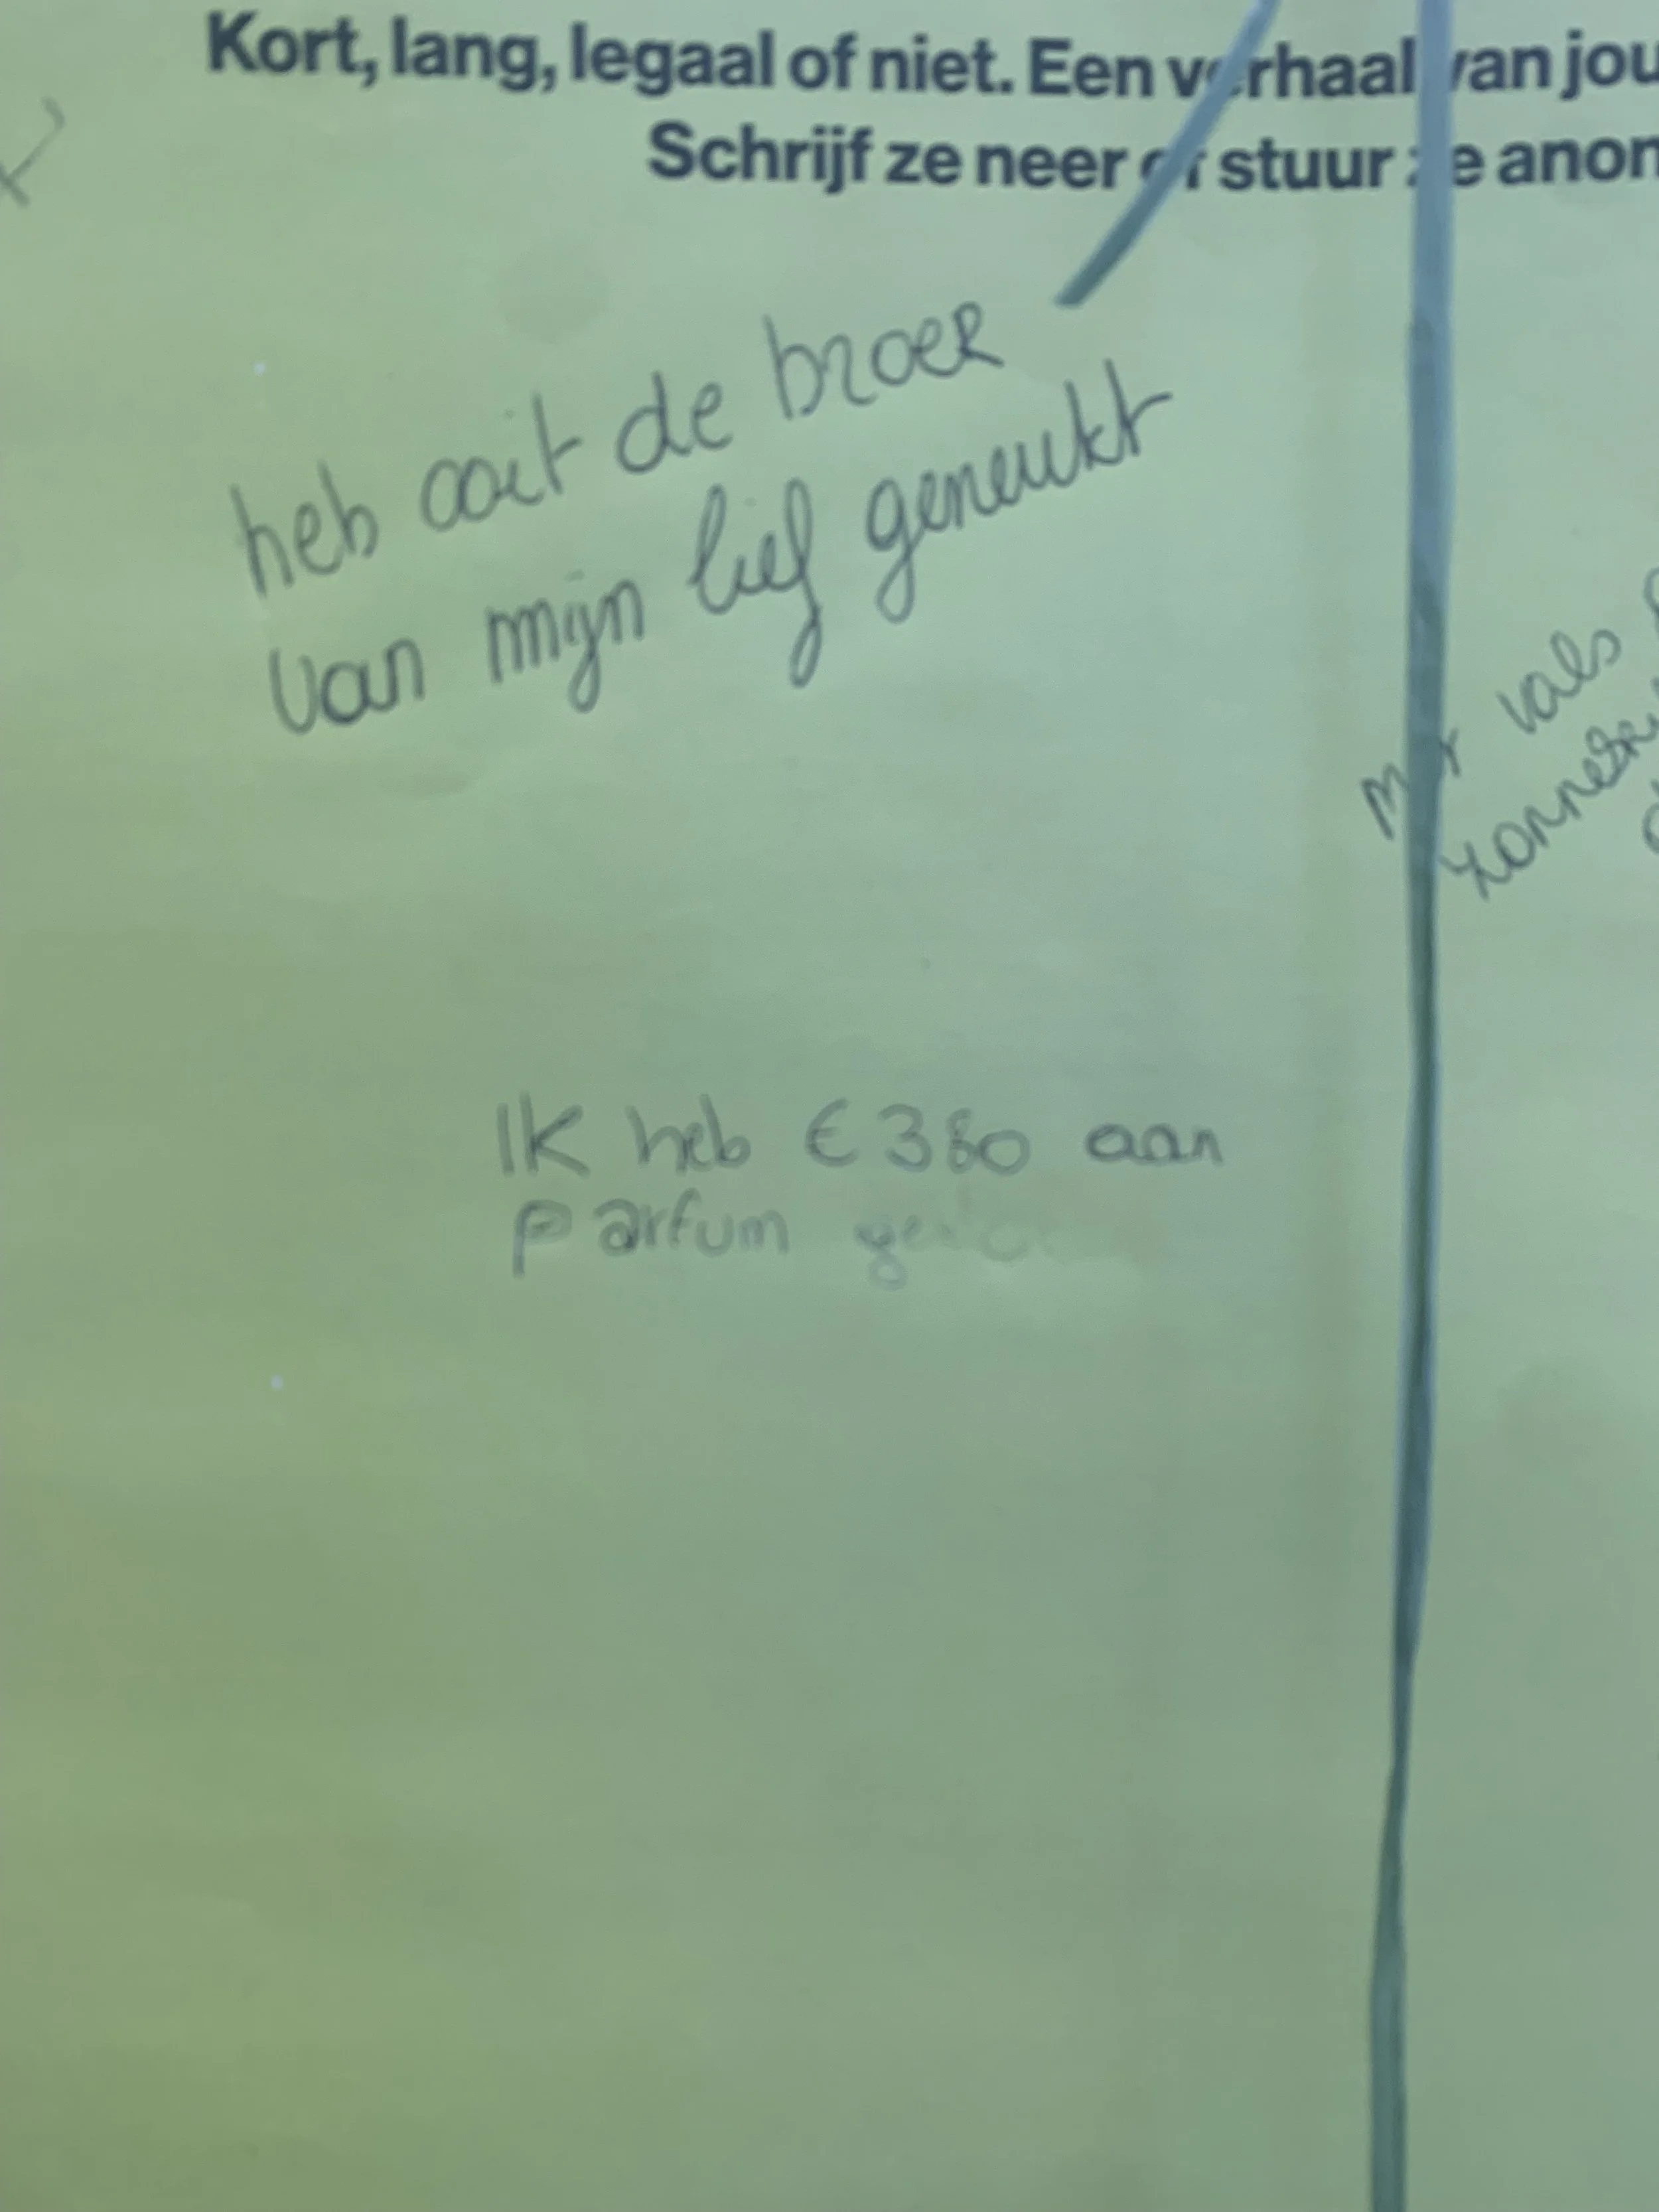 Kort, lang, legaal of niet. Een verhaal van jou
Schrijf ze neer of stuur ze anon
heb ooit de broer
van mijn lief geneukt
vals
Ik heb € 380 aan
parfum